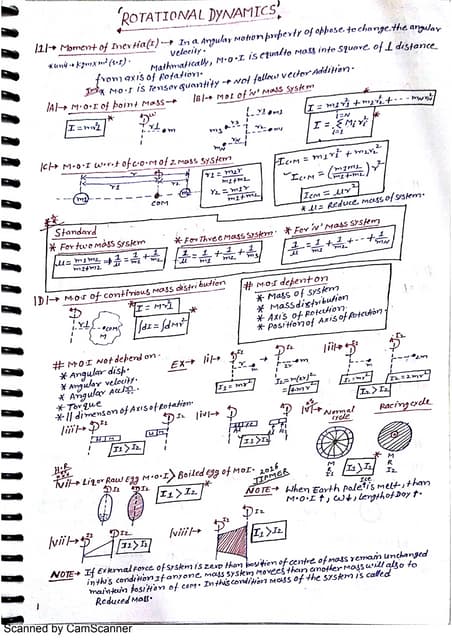 ROTATIONAL DYNAMICS
|1|→ Moment of Inertia(I) → In a Angular Motion property of oppose to change the angular
velocity.
Mathmatically, M.O.I is equal to Mass into square of ⊥ distance
from axis of Rotation.
M.O.I is Tensor quantity → Not follow vector Addition.
|A|→ M.O.I of point Mass→
I = mr²
|B|→ MOI of 'N' Mass system
I = m₁r₁² + m₂r₂² + ---- mₙrₙ²
I = Σ Mᵢrᵢ²
|C|→ M.O.I w.r.t C.O.M of 2 mass system
COM
r₁ = m₂r/m₁+m₂
r₂ = m₁r/m₁+m₂
Icm = m₁r₁² + m₂r₂²
Icm = (m₁m₂/m₁+m₂) r²
Icm = μr²
* μ = Reduce mass of system.
Standard
* For two mass system
μ = m₁m₂/m₁+m₂ ⇒ 1/μ = 1/m₁ + 1/m₂
* For Three Mass system
1/μ = 1/m₁ + 1/m₂ + 1/m₃
* For 'N' Mass system
1/μ = 1/m₁ + 1/m₂ + --- + 1/mN
|D|→ M.O.I of continious Mass distribution
* I = Mr²
∫dI = ∫dMr²
# M.O.I depend on
* Mass of system
* Mass distribution
* Axis of Rotation
* Position of Axis of Rotation.
# M.O.I Not depend on
* Angular disp.
* Angular velocity.
* Angular Accn.
* Torque
* || dimension of Axis of Rotation.
Ex→ |i|→
I₁ = mr²
|ii|→
I₁ = mr²
I₂ = 2mr²
|iii|→
I₁ > I₂
|iv|→
I₁ > I₂
|v|→ Normal cycle
Racing cycle
I₁ > I₂
|vi|→ Liqor Raw Egg M.O.I > Boiled egg of M.O.I.
I₁ > I₂
NOTE → When Earth Pole Ice is melt, than
M.O.I ↑, W↓, Length of Day ↑.
|vii|→
I₂ > I₁
|viii|→
I₁ > I₂
NOTE → If External Force of system is zero than position of centre of mass remain unchanged
in this condition if any one mass system moves than another Mass will also to
maintain position of COM. In this condition mass of the system is called
Reduced Mass.
1
Scanned by CamScanner